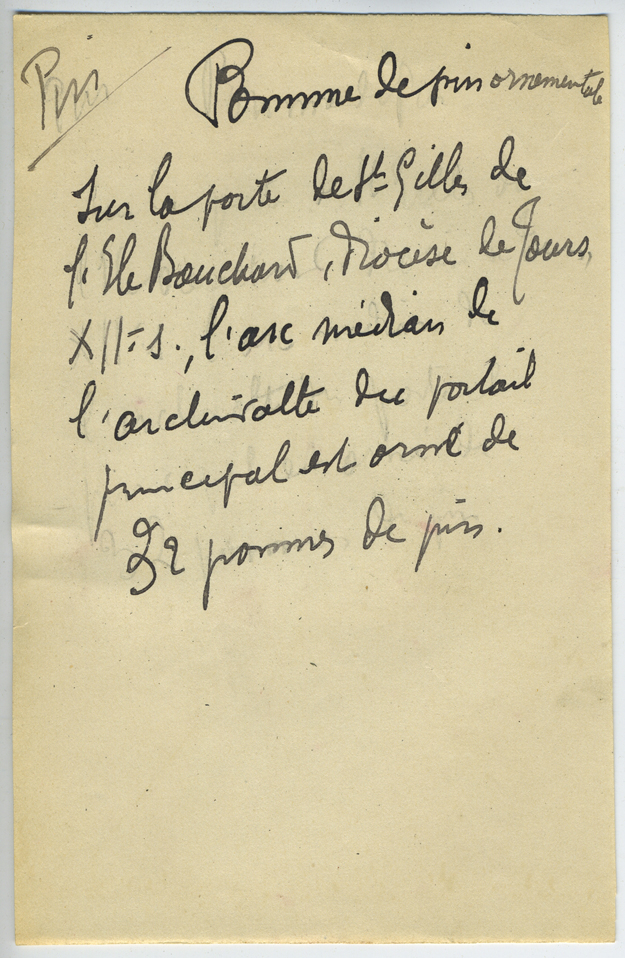 Pin
Pomme de pin ornementale
Sur la porte de St Gilles de
l'Ile Bouchard, diocèse de Tours,
XIIe s., l'arc médian de
l'archivolte du portail
principal est orné de
32 pommes de pin.